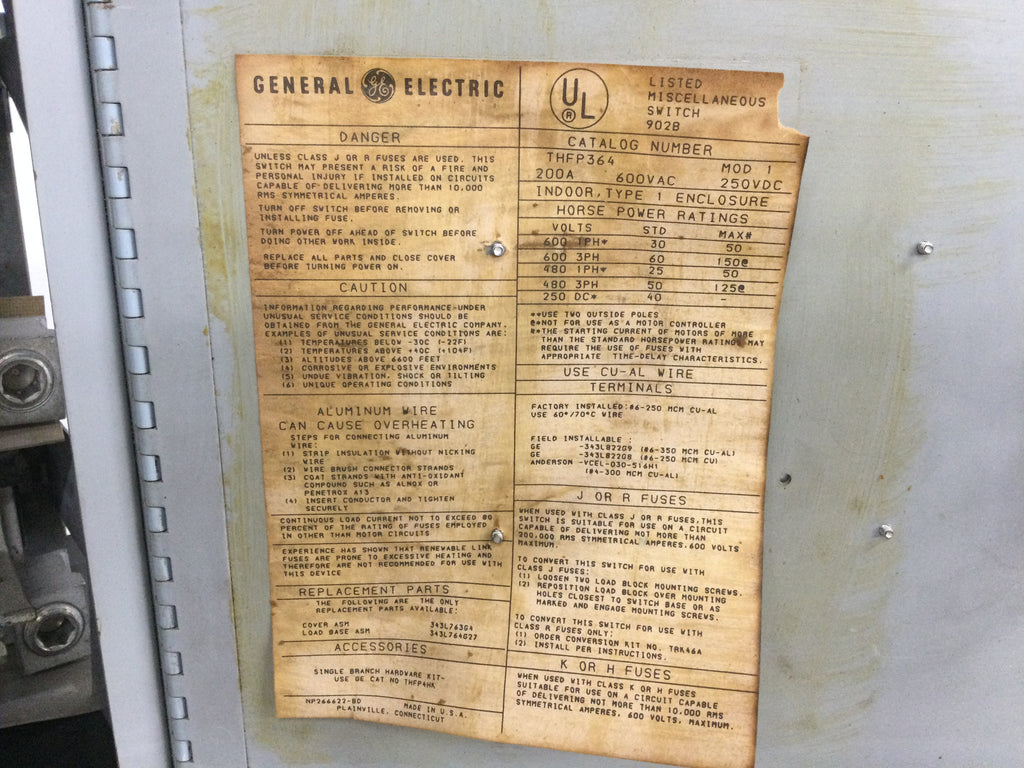 GENERAL GE ELECTRIC
DANGER
UNLESS CLASS J OR R FUSES ARE USED, THIS
SWITCH MAY PRESENT A RISK OF A FIRE AND
PERSONAL INJURY IF INSTALLED ON CIRCUITS
CAPABLE OF DELIVERING MORE THAN 10,000
RMS SYMMETRICAL AMPERES.
TURN OFF SWITCH BEFORE REMOVING OR
INSTALLING FUSE.
TURN POWER OFF AHEAD OF SWITCH BEFORE
DOING OTHER WORK INSIDE.
REPLACE ALL PARTS AND CLOSE COVER
BEFORE TURNING POWER ON.
CAUTION
INFORMATION REGARDING PERFORMANCE-UNDER
UNUSUAL SERVICE CONDITIONS SHOULD BE
OBTAINED FROM THE GENERAL ELECTRIC COMPANY.
EXAMPLES OF UNUSUAL SERVICE CONDITIONS ARE:
(1) TEMPERATURES BELOW -30C (-22F)
(2) TEMPERATURES ABOVE +40C (+104F)
(3) ALTITUDES ABOVE 6600 FEET
(4) CORROSIVE OR EXPLOSIVE ENVIRONMENTS
(5) UNDUE VIBRATION, SHOCK OR TILTING
(6) UNIQUE OPERATING CONDITIONS
ALUMINUM WIRE
CAN CAUSE OVERHEATING
STEPS FOR CONNECTING ALUMINUM
WIRE:
(1) STRIP INSULATION WITHOUT NICKING
WIRE
(2) WIRE BRUSH CONNECTOR STRANDS
(3) COAT STRANDS WITH ANTI-OXIDANT
COMPOUND SUCH AS ALNOX OR
PENETROX A13
(4) INSERT CONDUCTOR AND TIGHTEN
SECURELY
CONTINUOUS LOAD CURRENT NOT TO EXCEED 80
PERCENT OF THE RATING OF FUSES EMPLOYED
IN OTHER THAN MOTOR CIRCUITS
EXPERIENCE HAS SHOWN THAT RENEWABLE LINK
FUSES ARE PRONE TO EXCESSIVE HEATING AND
THEREFORE ARE NOT RECOMMENDED FOR USE WITH
THIS DEVICE
REPLACEMENT PARTS
THE FOLLOWING ARE THE ONLY
REPLACEMENT PARTS AVAILABLE:
COVER ASM 343L763G4
LOAD BASE ASM 343L764G27
ACCESSORIES
SINGLE BRANCH HARDWARE KIT-
USE GE CAT NO THFP4HK
NP266622-BD MADE IN U.S.A.
PLAINVILLE, CONNECTICUT
UL ®
LISTED
MISCELLANEOUS
SWITCH
902B
CATALOG NUMBER
THFP364 MOD 1
200A 600VAC 250VDC
INDOOR, TYPE 1 ENCLOSURE
HORSE POWER RATINGS
VOLTS STD MAX#
600 1PH* 30 50
600 3PH 60 150@
480 1PH* 25 50
480 3PH 50 125@
250 DC* 40 -
**USE TWO OUTSIDE POLES
@*NOT FOR USE AS A MOTOR CONTROLLER
#*THE STARTING CURRENT OF MOTORS OF MORE
THAN THE STANDARD HORSEPOWER RATINGS MAY
REQUIRE THE USE OF FUSES WITH
APPROPRIATE TIME-DELAY CHARACTERISTICS.
USE CU-AL WIRE
TERMINALS
FACTORY INSTALLED:#6-250 MCM CU-AL
USE 60°/70°C WIRE
FIELD INSTALLABLE :
GE -343L822G9 (#6-350 MCM CU-AL)
GE -343L822G8 (#6-250 MCM CU)
ANDERSON -VCEL-030-516H1
(#4-300 MCM CU-AL)
J OR R FUSES
WHEN USED WITH CLASS J OR R FUSES,THIS
SWITCH IS SUITABLE FOR USE ON A CIRCUIT
CAPABLE OF DELIVERING NOT MORE THAN
200,000 RMS SYMMETRICAL AMPERES,600 VOLTS
MAXIMUM.
TO CONVERT THIS SWITCH FOR USE WITH
CLASS J FUSES:
(1) LOOSEN TWO LOAD BLOCK MOUNTING SCREWS.
(2) REPOSITION LOAD BLOCK OVER MOUNTING
HOLES CLOSEST TO SWITCH BASE OR AS
MARKED AND ENGAGE MOUNTING SCREWS.
TO CONVERT THIS SWITCH FOR USE WITH
CLASS R FUSES ONLY:
(1) ORDER CONVERSION KIT NO. TRK46A
(2) INSTALL PER INSTRUCTIONS.
K OR H FUSES
WHEN USED WITH CLASS K OR H FUSES
SUITABLE FOR USE ON A CIRCUIT CAPABLE
OF DELIVERING NOT MORE THAN 10,000 RMS
SYMMETRICAL AMPERES, 600 VOLTS, MAXIMUM.